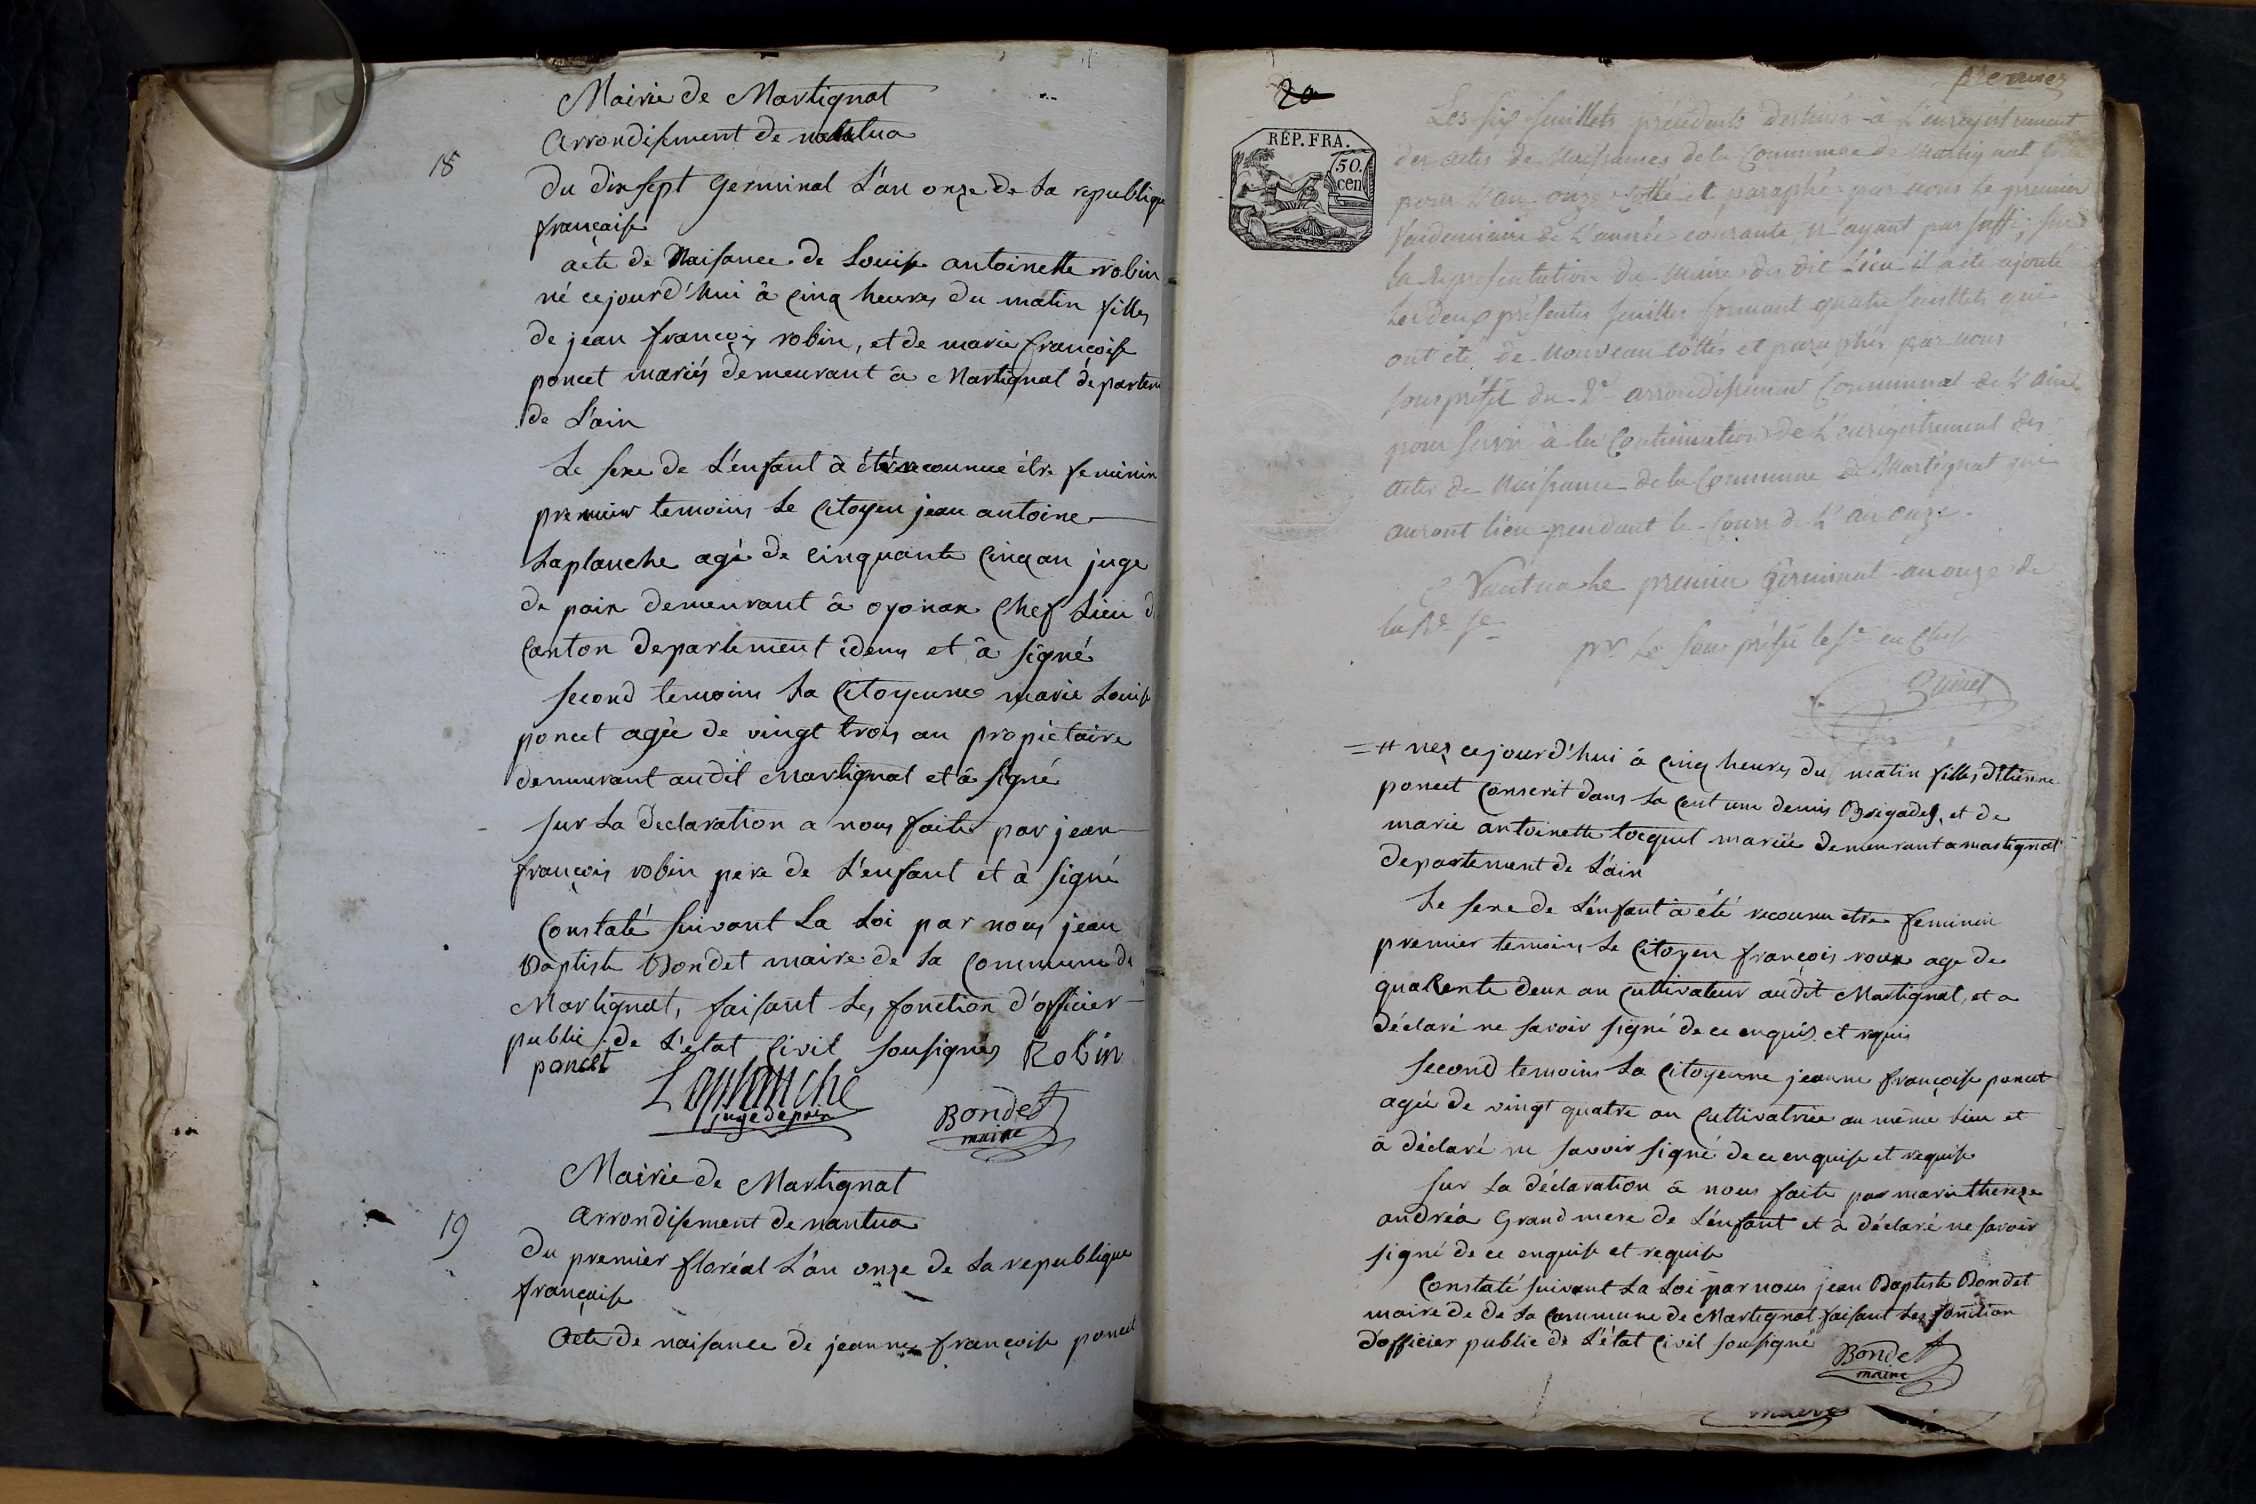 Mairie de Martignat
arrondisment de nantua
18
du dix sept Germinal L'an onze de La republique
française
acte de Naisance de Louise antoinette robin
né cejourd'hui à cinq heures du matin filles
de jean françois robin, et de marie françoise
poncet mariés demeurant à Martignat departem
de L'ain
Le sexe de L'enfant à été reconnue être feminin
premier temoins Le Citoyen jean antoine
Laplanche agé de cinquante cinq an juge
de paix demeurant à oyonax chef Lieu d
Canton departement idem et à signé
second temoins La Citoyenne marie Louise
poncet agée de vingt trois an propietaire
demeurant audit Martignat et à signé
sur La declaration a nous faite par jean
françois robin pere de L'enfant et à signé
Constaté suivant La Loi par nous jean
Baptiste Bondet maire de La Commune de
Martignat, faisant Les fonction d'officier
public de L'etat Civil sousignés Robin
poncet
Laplanche
juge de paix
Bondet
maire
Mairie de Martignat
arrondisement de nantua
19
du premier floréal L'an onze de La republique
française
Acte de naisance de jeanne françoise poncet
20
premier
RÉP. FRA.
50.
cen
Les six feuillets précédents destinés à L'enregistrement
des actes de Naissances de la Commune de Martignat
pour L'an onze cotté et paraphé par nous Le premier
Vendemiaire de L'année courante n'ayant pas suffi,
la Représentation du Maire du dit Lieu il a été ajouté
Les deux présentes feuilles formant quatre feuillets qui
ont été de Nouveau cottés et paraphés par nous
sous préfet du 2e arrondissement Communal de L'ain
pour servir à la Continuation de L'enregistrement des
actes de Naissance de la Commune de Martignat qui
auront lieu pendant le Cours de L'an onze.
à Nantua le premier Germinal an onze de
la Re fe
pr Le sous préfet le se en Chef
= # nez cejourd'hui à cinq heures du matin filles d'Etienne
poncet Conscrit dans La Cent une demis Brigades, et de
marie antoinette tocquet mariée demeurant a martignat
departement de L'ain
Le sexe de L'enfant à été reconnu etre feminin
premier temoins Le Citoyen françois roux age de
quarente deux an Cultivateur audit Martignat, et a
déclaré ne savoir signé de ce enquis et requis
second temoins La Citoyenne jeanne françoise poncet
agée de vingt quatre an Cultivatrice au même Lieu et
à déclaré ne savoir signé de ce enquise et requise
sur La déclaration à nous faite par marie thereze
andréa Grand mere de L'enfant et à déclaré ne savoir
signé de ce enquise et requise
Constaté suivant La Loi par nous jean Baptiste Bondet
maire de de La Commune de Martignat faisant Les fonction
d'officier public de L'état Civil sousigné
Bondet
maire
maire